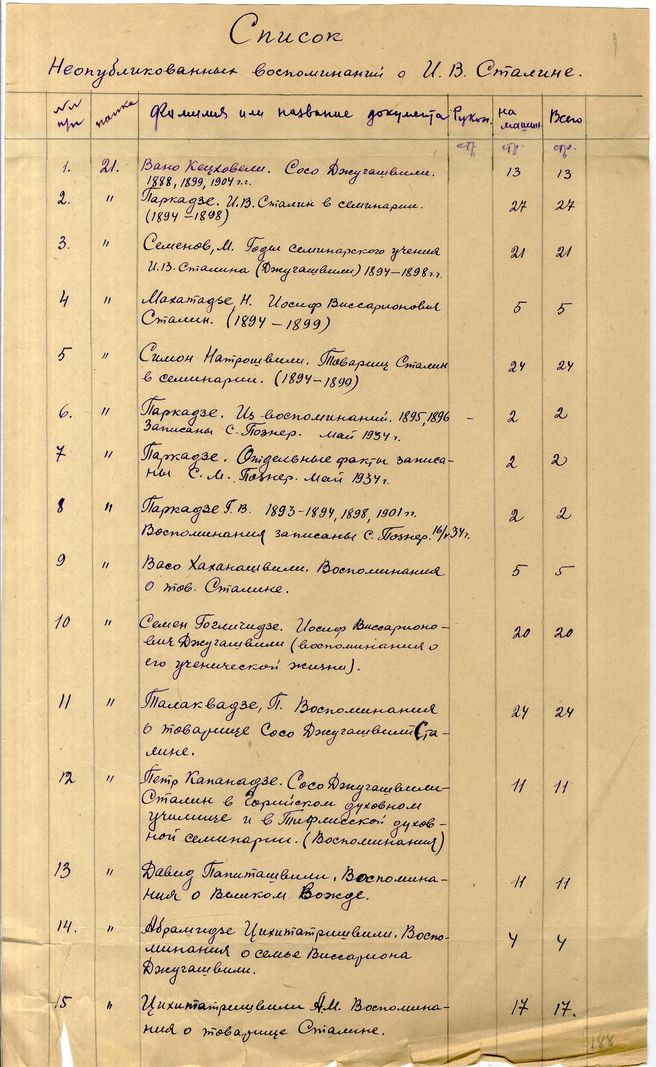 Список
Неопубликованных воспоминаний о И. В. Сталине.
№№ папка фамилия или название документа Рукоп. на Всего
п/п машин.
стр. стр. стр.
1. 21. Вано Кецховели. Сосо Джугашвили. 13 13
1888, 1899, 1904 г.г.
2. " Паркадзе. И.В. Сталин в семинарии. 27 27
(1894–1898)
3. " Семенов, М. Годы семинарского учения 21 21
И.В. Сталина (Джугашвили) 1894–1898 г.г.
4 " Махатадзе, Н. Иосиф Виссарионович 5 5
Сталин. (1894–1899)
5 " Симон Натрошвили. Товарищ Сталин 24 24
в семинарии. (1894–1899)
6. " Паркадзе. Из воспоминаний. 1895, 1896 – 2 2
Записаны С. Познер. май 1934 г.
7 " Паркадзе. Отдельные факты записа- 2 2
ны С. М. Познер. май 1934 г.
8 " Паркадзе Г. В. 1893–1894, 1898, 1901 гг. 2 2
Воспоминания записаны С. Познер. 16/V 34 г.
9 " Васо Хаханашвили. Воспоминания 5 5
о тов. Сталине.
10 " Семен Гогличидзе. Иосиф Виссарионо- 20 20
вич Джугашвили (воспоминания о
его ученической жизни).
11 " Талаквадзе, П. Воспоминания 24 24
о товарище Сосо Джугашвили Ста-
лине.
12 " Петр Капанадзе. Сосо Джугашвили- 11 11
Сталин в Горийском духовном
училище и в Тифлисской духов-
ной семинарии. (Воспоминания)
13 " Давид Папиташвили. Воспомина- 11 11
ния о Великом Вожде.
14. " Абрамгидзе Цихитатришвили. Воспо- 4 4
минания о семье Виссариона
Джугашвили.
15 " Цихитатришвили А.М. Воспомина- 17 17.
ния о товарище Сталине.
188